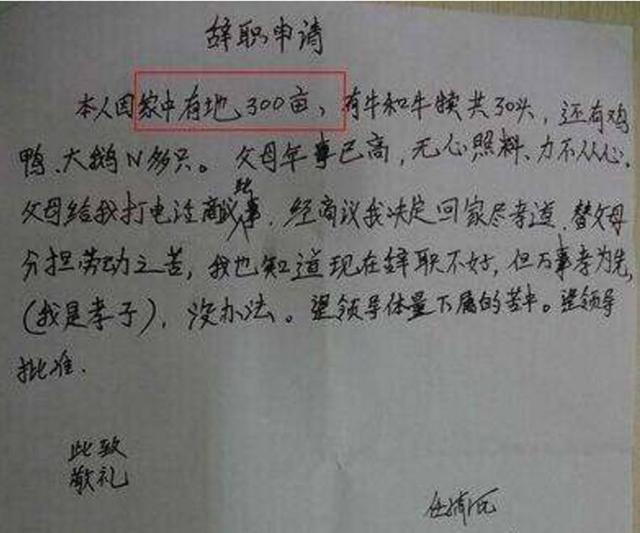 辞职申请
本人因家中有地300亩、有牛和牛犊共30头,还有鸡
鸭、大鹅N多只。父母年事已高,无心照料、力不从心、
父母给我打电话商议此事,经商议我决定回家尽孝道、替父母
分担劳动之苦,我也知道现在辞职不好,但万事孝为先,
(我是孝子),没办法。望领导体量下属的苦中。望领导
批准.
此致
敬礼